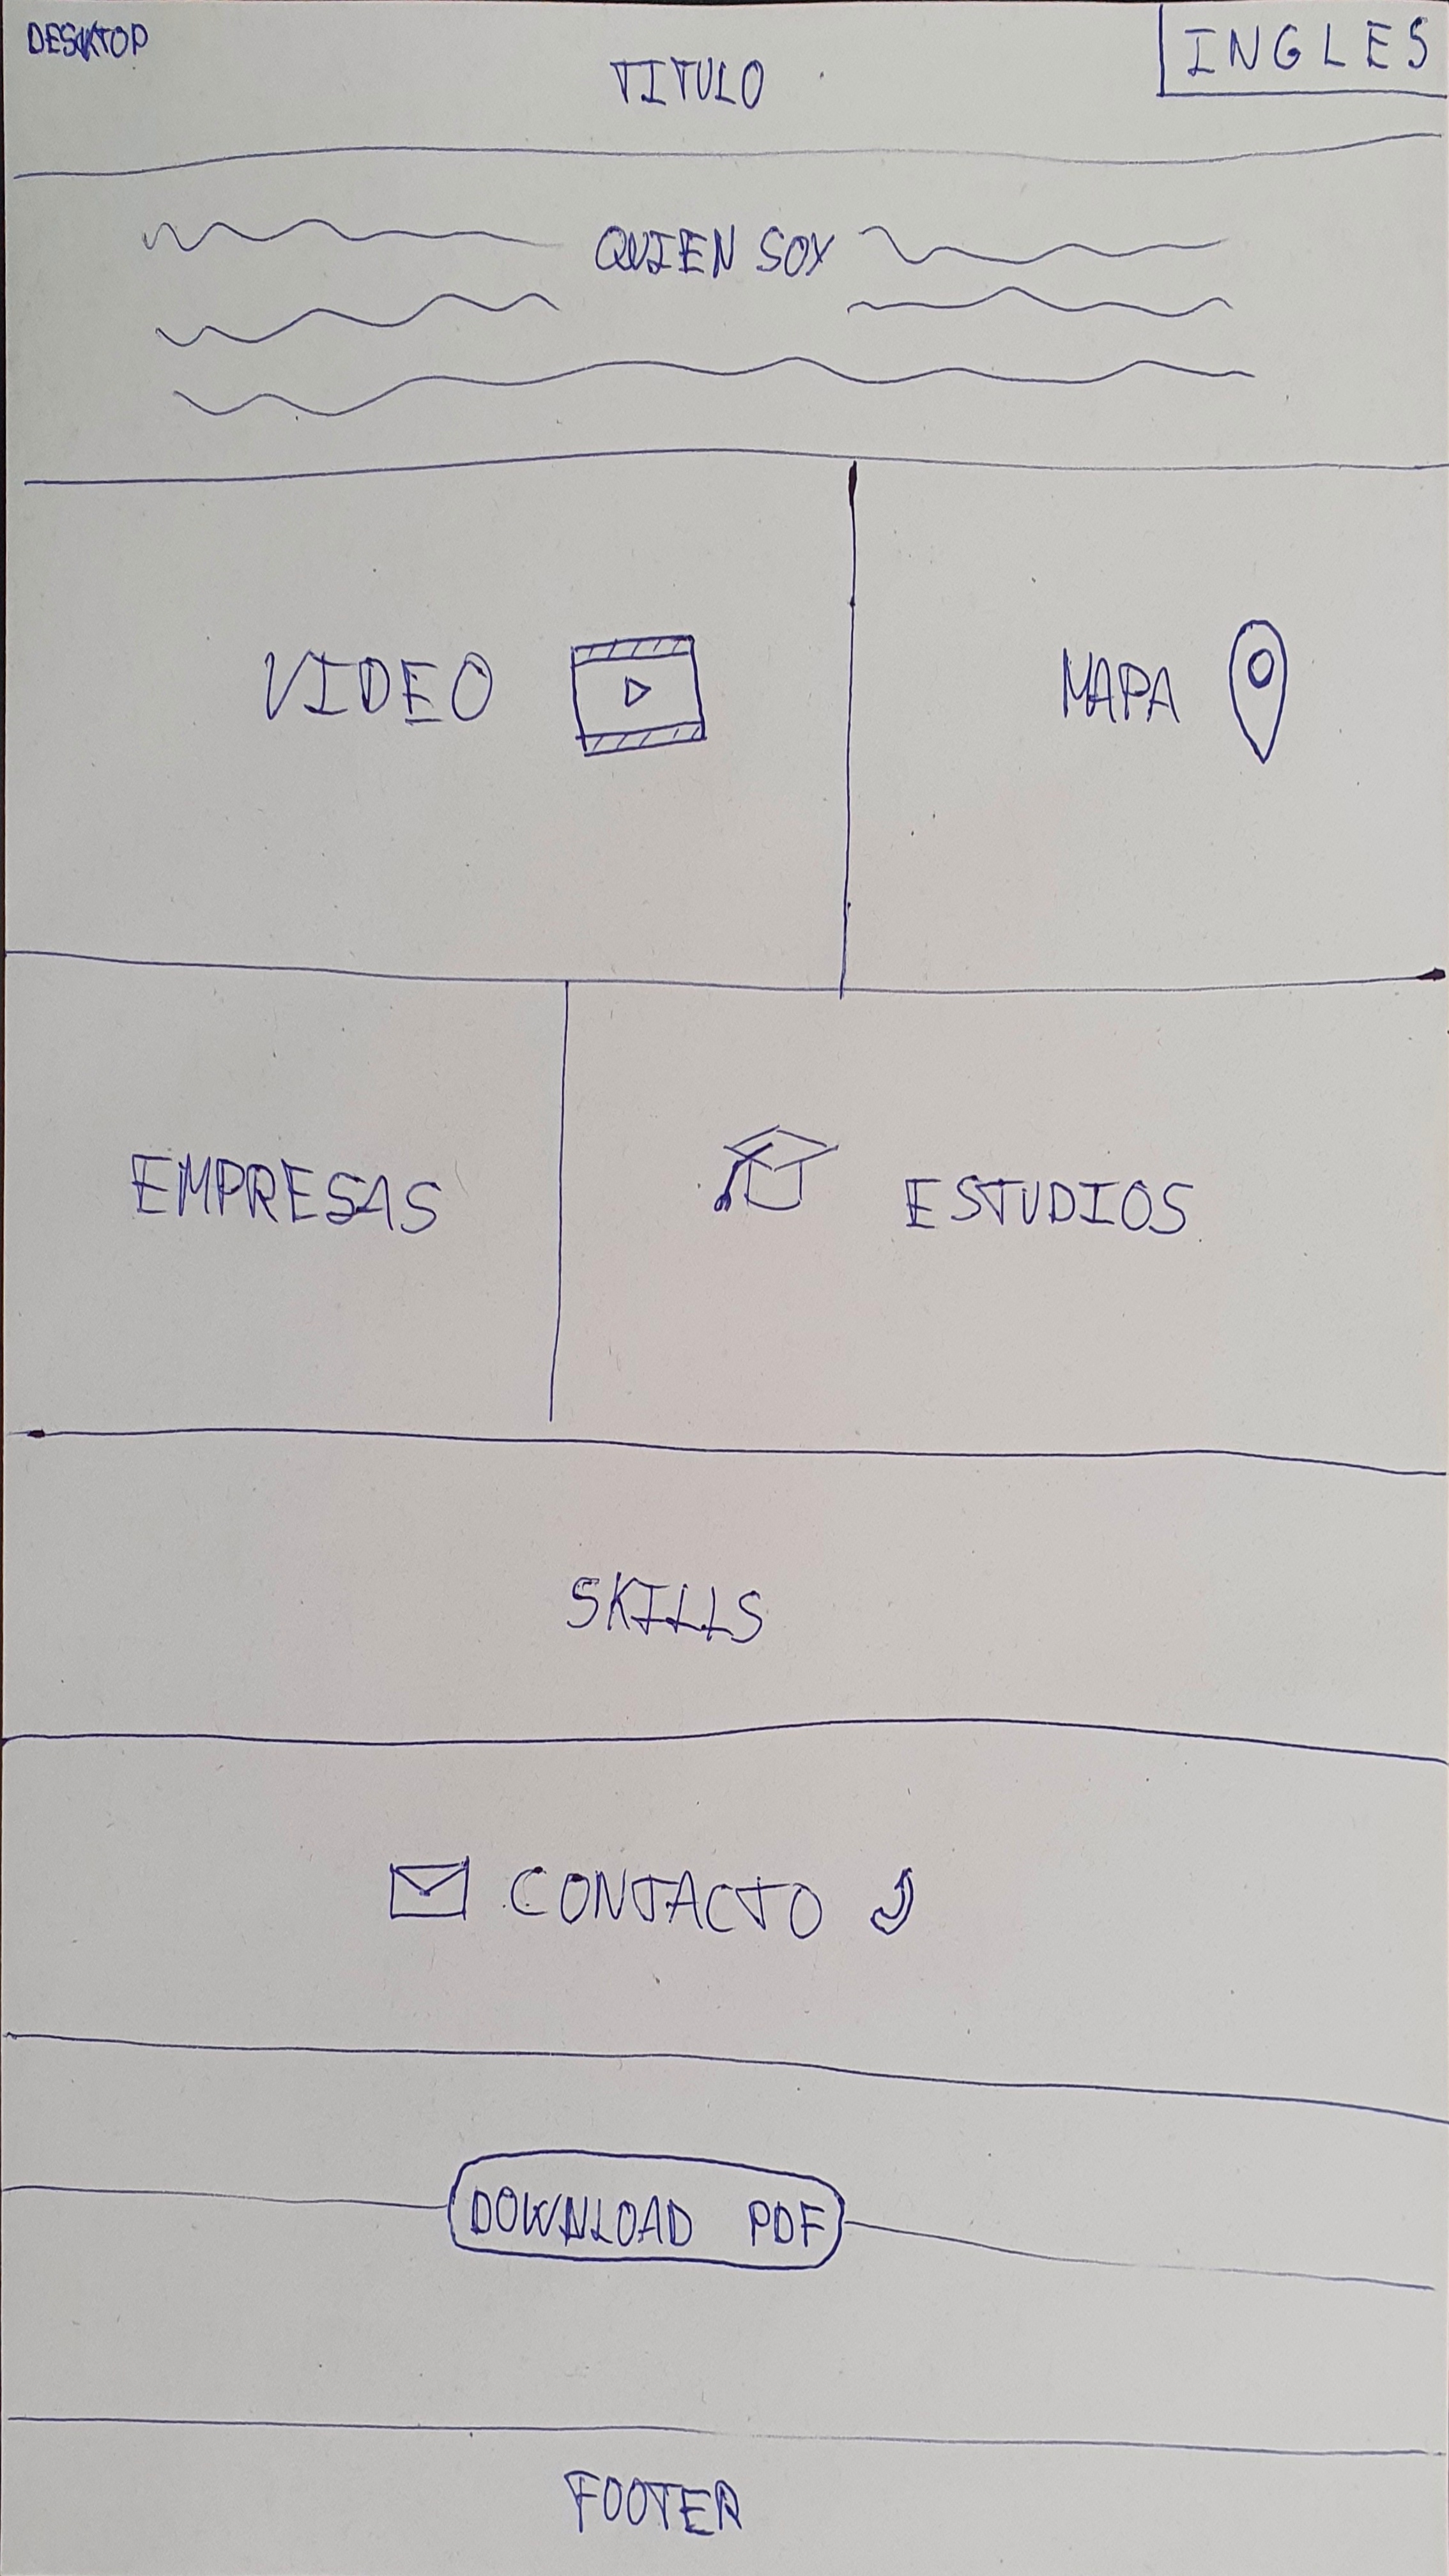 DESKTOP
INGLES
TITULO
QUIEN SOY
VIDEO
MAPA
EMPRESAS
ESTUDIOS
SKILLS
CONTACTO
DOWNLOAD PDF
FOOTER